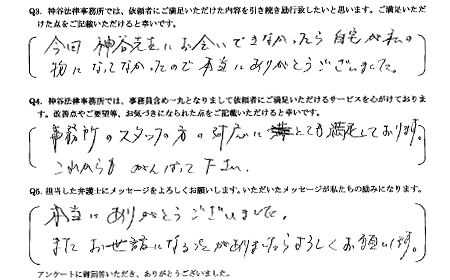 Q3. 神谷法律事務所では、依頼者にご満足いただけた内容を引き続き励行致したいと思います。ご満足いただ
けた点をご記載いただけると幸いです。
今回 神谷先生にお会いできなかったら自宅が私の
物になってなかったので本当にありがとうございました。
Q4. 神谷法律事務所では、事務員含め一丸となりまして依頼者にご満足いただけるサービスを心がけておりま
す。改善点やご要望等、お気づきになられた点をご記載いただけると幸いです。
事務所のスタッフの方の対応にとても満足しております。
これからも がんばって下さい。
Q5. 担当した弁護士にメッセージをよろしくお願いします。いただいたメッセージが私たちの励みになります。
本当にありがとうございました。
また お世話になることがありましたらよろしくお願いします。
アンケートに御回答いただき、ありがとうございました。